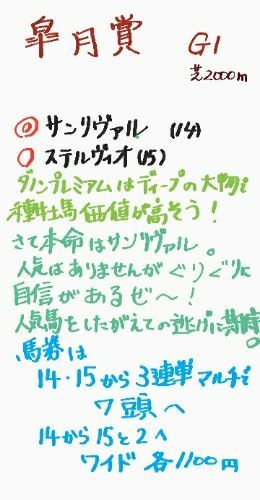 皐月賞 G1
芝2000m
◎サンリヴァル (14)
○ステルヴィオ(15)
ダノンプレミアムはディープの大物で
種牡馬価値が高そう!
さて本命はサンリヴァル。
人気はありませんがぐりぐりに
自信があるぜ〜!
人気馬をしたがえての逃げに期待。
馬券は
14・15から3連単マルチで
7頭へ
14から15と2へ
ワイド各1100円